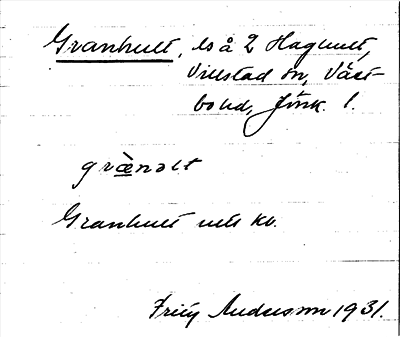 Granhult, ls å 2 Haghult,
Villstad sn, Väst-
bo hd, Jönk. l.
grànəlt
Granhult utt kv.
Frity Anderson 1931.